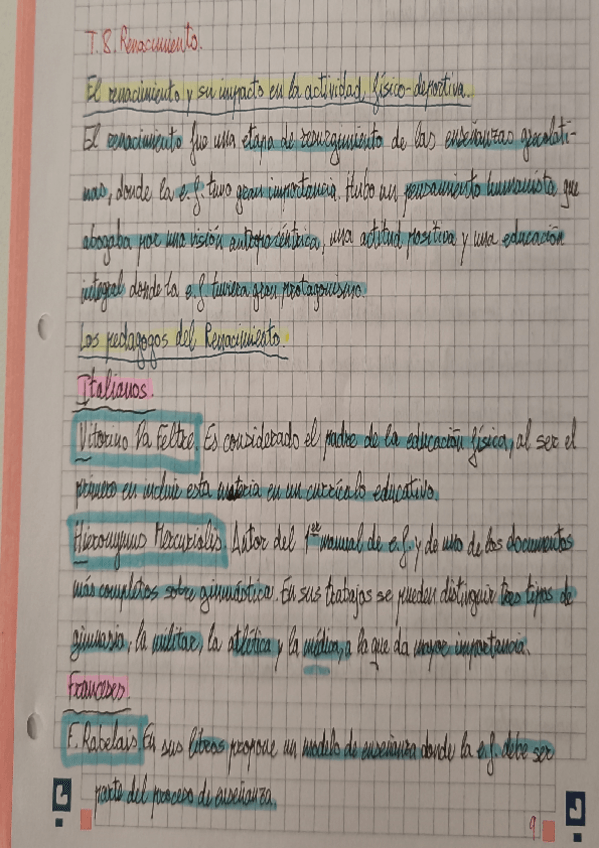 T.8. Renacimiento.
El renacimiento y su impacto en la actividad físico-deportiva.
El renacimiento fue una etapa de resurgimiento de las enseñanzas grecolati-
nas, donde la e.f. tuvo gran importancia. Hubo un pensamiento humanista que
abogaba por una visión antropocéntrica, una actitud positiva y una educación
integral donde la e.f. tuviera gran protagonismo.
Los pedagogos del Renacimiento.
Italianos.
Vitorino Da Feltre. Es considerado el padre de la educación física, al ser el
primero en incluir esta materia en un currículo educativo.
Hieronymus Mercurialis. Autor del 1er manual de e.f. y de uno de los documentos
más completos sobre gimnástica. En sus trabajos se pueden distinguir tres tipos de
gimnasia, la militar, la atlética y la médica, a la que da mayor importancia.
Franceses.
F. Rabelais. En sus libros propone un modelo de enseñanza donde la e.f. debe ser
parte del proceso de enseñanza.
9